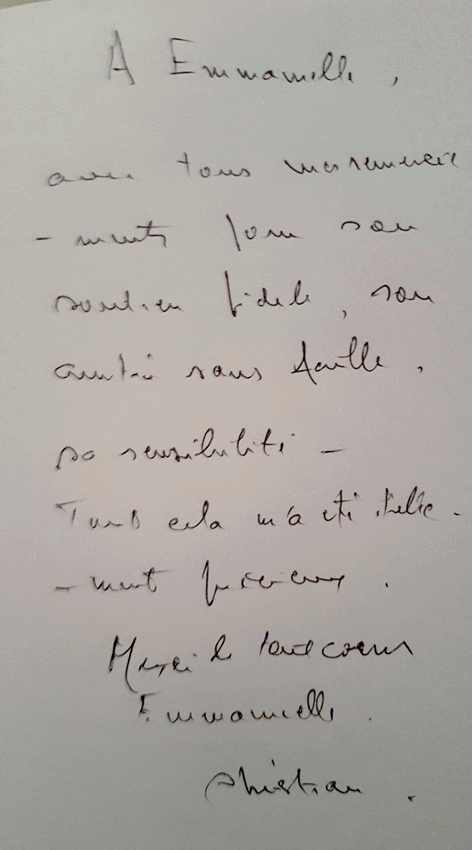 A Emmanuelle,
avec tous mes remercie
-ments pour son
soutien fidèle, son
amitié sans faille,
sa sensibilité -
Tout cela m'a été telle-
-ment précieux.
Merci de tout coeur
Emmanuelle.
Christian.